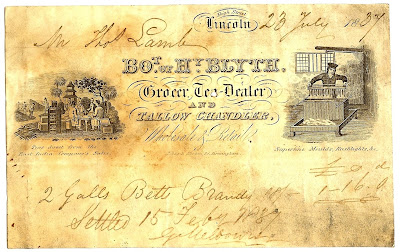 High Street
Lincoln 23 July 1837
Mr Thos Lamb
BOT. OF HY. BLYTH,
Grocer, Tea-Dealer
AND
TALLOW CHANDLER,
Wholesale & Retail.
Teas direct from the
East India Company's Sales.
Superfine Moulds, Rushlights, &c.
£ s d
2 Galls Bett Brandy 1-16-0
Settled 15 Feby 1838